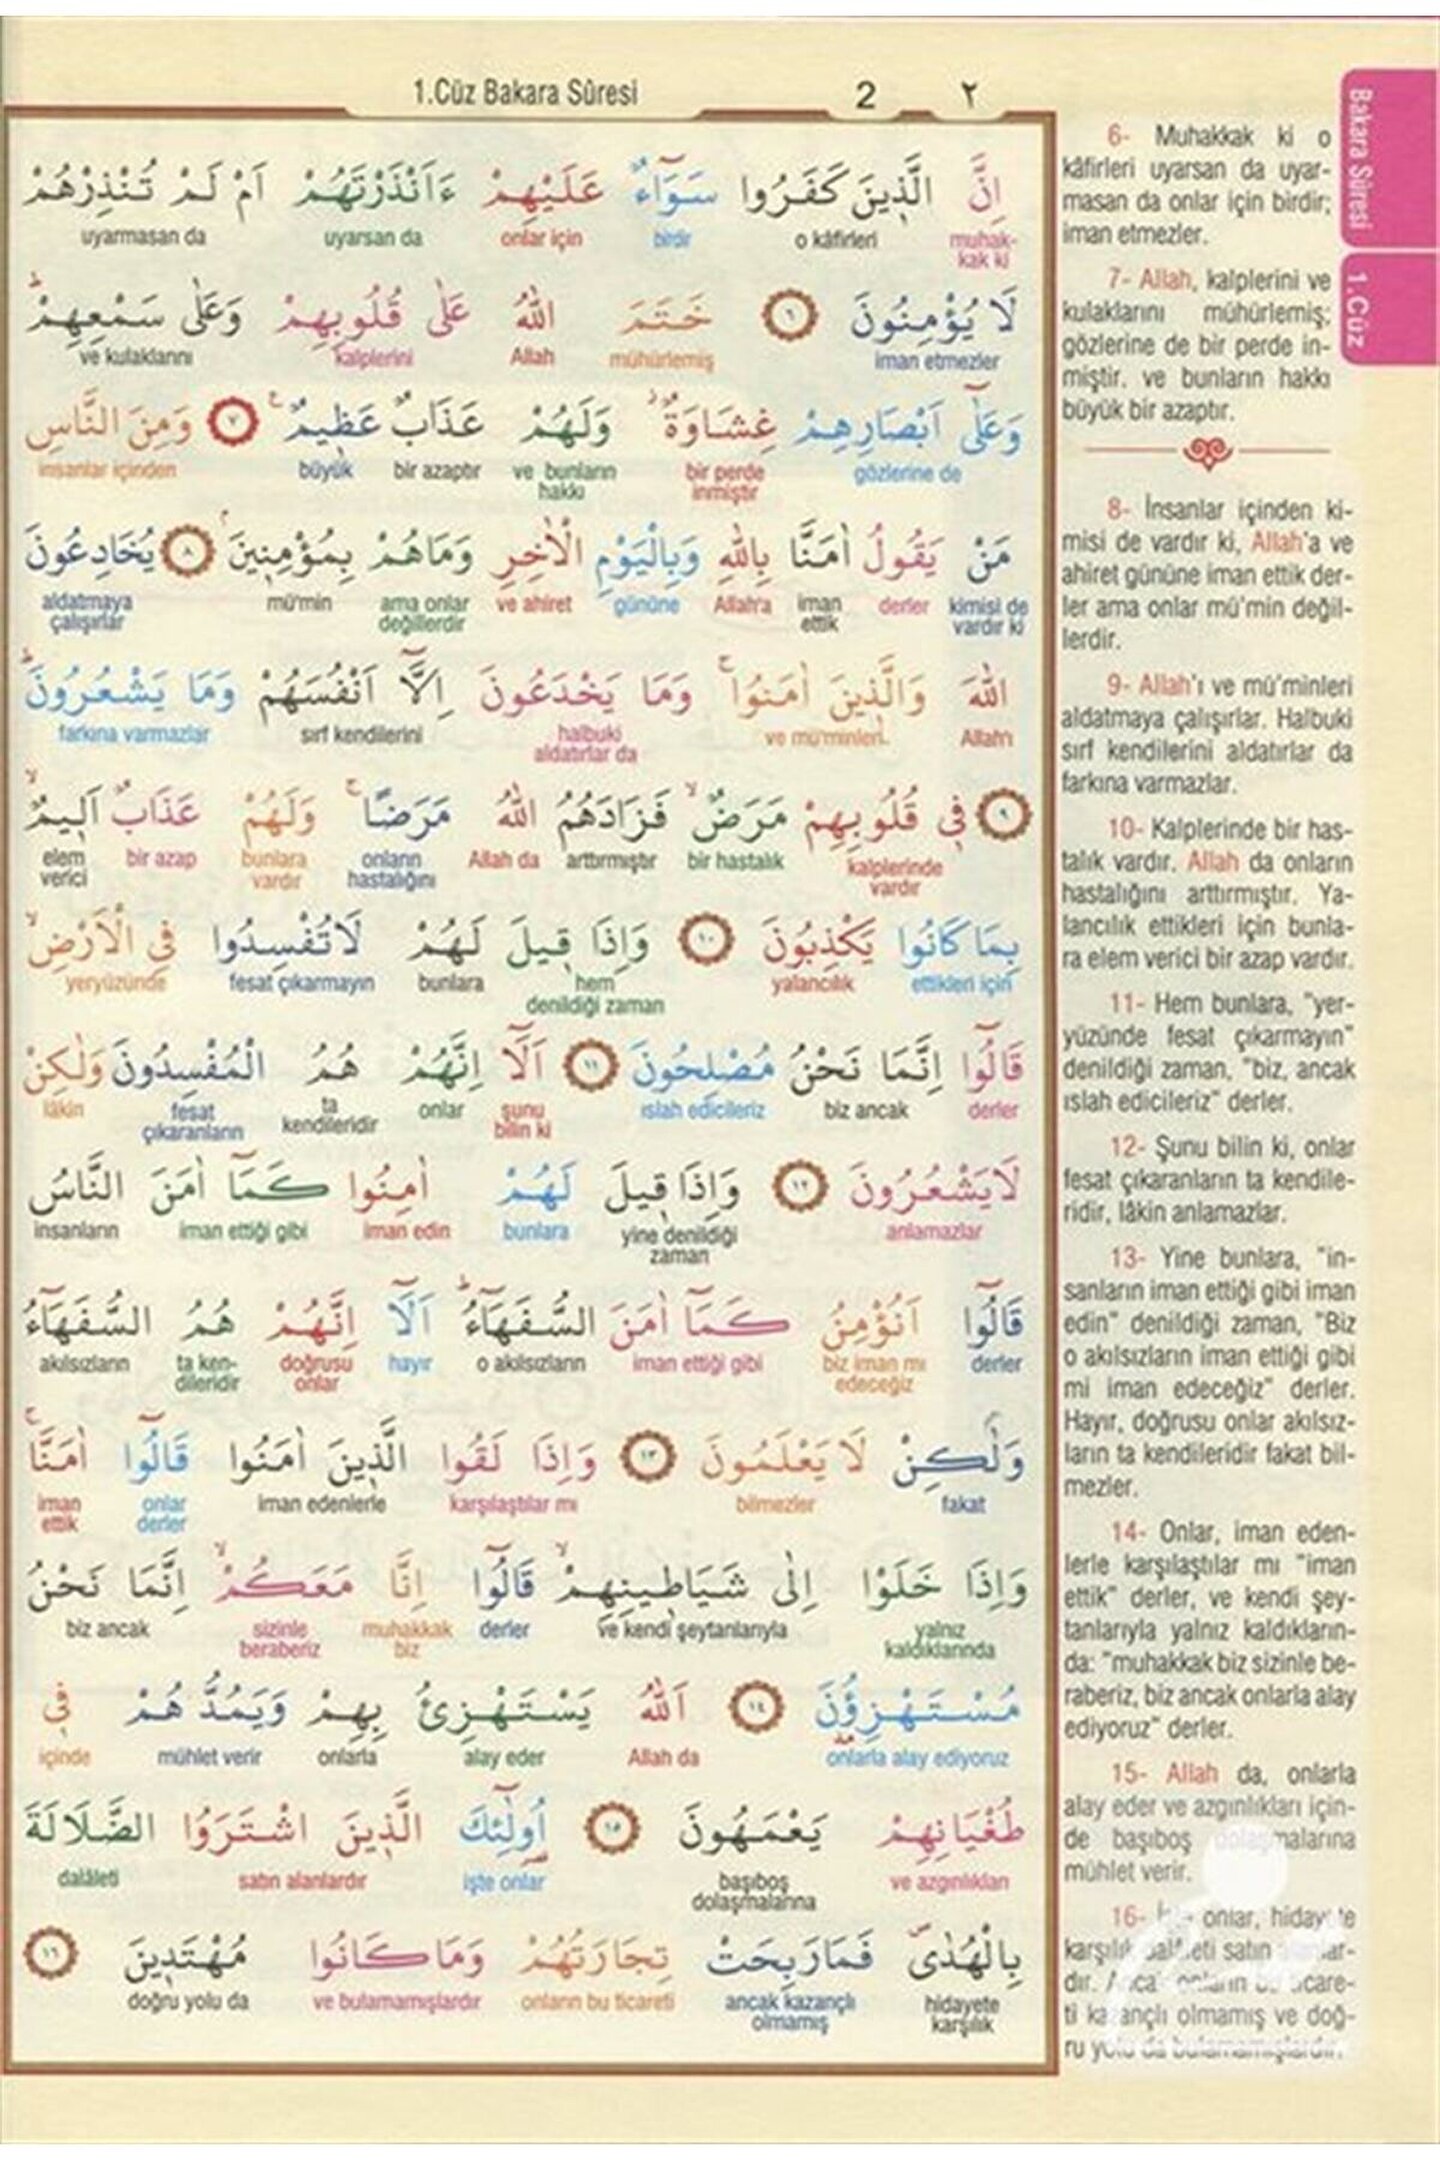 1.Cüz Bakara Sûresi 2 ٢
اِنَّ الَّذٖينَ كَفَرُوا سَوَٓاءٌ عَلَيْهِمْ ءَاَنْذَرْتَهُمْ اَمْ لَمْ تُنْذِرْهُمْ
muhak-kak ki o kâfirleri birdir onlar için uyarsan da uyarmasan da
لَا يُؤْمِنُونَ ﴿٦﴾ خَتَمَ اللّٰهُ عَلٰى قُلُوبِهِمْ وَعَلٰى سَمْعِهِمْؕ
iman etmezler mühürlemiş Allah kalplerini ve kulaklarını
وَعَلٰٓى اَبْصَارِهِمْ غِشَاوَةٌؗ وَلَهُمْ عَذَابٌ عَظٖيمٌࣖ ﴿٧﴾ وَمِنَ النَّاسِ
gözlerine de bir perde inmiştir ve bunların hakkı bir azaptır büyük insanlar içinden
مَنْ يَقُولُ اٰمَنَّا بِاللّٰهِ وَبِالْيَوْمِ الْاٰخِرِ وَمَاهُمْ بِمُؤْمِنٖينَۘ ﴿٨﴾ يُخَادِعُونَ
kimisi de vardır ki derler iman ettik Allah'a gününe ve ahiret ama onlar değillerdir mü'min aldatmaya çalışırlar
اللّٰهَ وَالَّذٖينَ اٰمَنُواۚ وَمَا يَخْدَعُونَ اِلَّٓا اَنْفُسَهُمْ وَمَا يَشْعُرُونَؕ
Allah'ı ve mü'minleri halbuki aldatırlar da sırf kendilerini farkına varmazlar
﴿٩﴾ فٖي قُلُوبِهِمْ مَرَضٌۙ فَزَادَهُمُ اللّٰهُ مَرَضًاۚ وَلَهُمْ عَذَابٌ اَلٖيمٌۙ
kalplerinde vardır bir hastalık arttırmıştır Allah da onların hastalığını bunlara vardır bir azap elem verici
بِمَا كَانُوا يَكْذِبُونَ ﴿١٠﴾ وَاِذَا قٖيلَ لَهُمْ لَاتُفْسِدُوا فِي الْاَرْضِۙ
ettikleri için yalancılık hem denildiği zaman bunlara fesat çıkarmayın yeryüzünde
قَالُٓوا اِنَّمَا نَحْنُ مُصْلِحُونَ ﴿١١﴾ اَلَٓا اِنَّهُمْ هُمُ الْمُفْسِدُونَ وَلٰكِنْ
derler biz ancak ıslah edicileriz şunu bilin ki onlar ta kendileridir fesat çıkaranların lâkin
لَايَشْعُرُونَ ﴿١٢﴾ وَاِذَا قٖيلَ لَهُمْ اٰمِنُوا كَمَٓا اٰمَنَ النَّاسُ
anlamazlar yine denildiği zaman bunlara iman edin iman ettiği gibi insanların
قَالُٓوا اَنُؤْمِنُ كَمَٓا اٰمَنَ السُّفَهَٓاءُؕ اَلَٓا اِنَّهُمْ هُمُ السُّفَهَٓاءُ
derler biz iman mı edeceğiz iman ettiği gibi o akılsızların hayır doğrusu onlar ta ken-dileridir akılsızların
وَلٰكِنْ لَا يَعْلَمُونَ ﴿١٣﴾ وَاِذَا لَقُوا الَّذٖينَ اٰمَنُوا قَالُٓوا اٰمَنَّاۚ
fakat bilmezler karşılaştılar mı iman edenlerle onlar derler iman ettik
وَاِذَا خَلَوْا اِلٰى شَيَاطٖينِهِمْۙ قَالُٓوا اِنَّا مَعَكُمْۙ اِنَّمَا نَحْنُ
yalnız kaldıklarında ve kendi şeytanlarıyla derler muhakkak biz sizinle beraberiz biz ancak
مُسْتَهْزِؤُ۫نَ ﴿١٤﴾ اَللّٰهُ يَسْتَهْزِئُ بِهِمْ وَيَمُدُّهُمْ فٖي
onlarla alay ediyoruz Allah da alay eder onlarla mühlet verir içinde
طُغْيَانِهِمْ يَعْمَهُونَ ﴿١٥﴾ اُو۬لٰٓئِكَ الَّذٖينَ اشْتَرَوُا الضَّلَالَةَ
ve azgınlıkları başıboş dolaşmalarına işte onlar satın alanlardır dalâleti
بِالْهُدٰىࣕ فَمَارَبِحَتْ تِجَارَتُهُمْ وَمَاكَانُوا مُهْتَدٖينَ ﴿١٦﴾
hidayete karşılık ancak kazançlı olmamış onların bu ticareti ve bulamamışlardır doğru yolu da
6- Muhakkak ki o
kâfirleri uyarsan da uyar-
masan da onlar için birdir;
iman etmezler.
7- Allah, kalplerini ve
kulaklarını mühürlemiş;
gözlerine de bir perde in-
miştir. ve bunların hakkı
büyük bir azaptır.
8- İnsanlar içinden ki-
misi de vardır ki, Allah'a ve
ahiret gününe iman ettik der-
ler ama onlar mü'min değil-
lerdir.
9- Allah'ı ve mü'minleri
aldatmaya çalışırlar. Halbuki
sırf kendilerini aldatırlar da
farkına varmazlar.
10- Kalplerinde bir has-
talık vardır. Allah da onların
hastalığını arttırmıştır. Ya-
lancılık ettikleri için bunla-
ra elem verici bir azap vardır.
11- Hem bunlara, "yer-
yüzünde fesat çıkarmayın"
denildiği zaman, "biz, ancak
ıslah edicileriz" derler.
12- Şunu bilin ki, onlar
fesat çıkaranların ta kendile-
ridir, lâkin anlamazlar.
13- Yine bunlara, "in-
sanların iman ettiği gibi iman
edin" denildiği zaman, "Biz
o akılsızların iman ettiği gibi
mi iman edeceğiz" derler.
Hayır, doğrusu onlar akılsız-
ların ta kendileridir fakat bil-
mezler.
14- Onlar, iman eden-
lerle karşılaştılar mı "iman
ettik" derler, ve kendi şey-
tanlarıyla yalnız kaldıkların-
da: "muhakkak biz sizinle be-
raberiz, biz ancak onlarla alay
ediyoruz" derler.
15- Allah da, onlarla
alay eder ve azgınlıkları için-
de başıboş dolaşmalarına
mühlet verir.
16- İşte onlar, hidayete
karşılık dalâleti satın alanlar-
dır. Ancak onların bu ticare-
ti kazançlı olmamış ve doğ-
ru yolu da bulamamışlardır.
Bakara Sûresi
1.Cüz